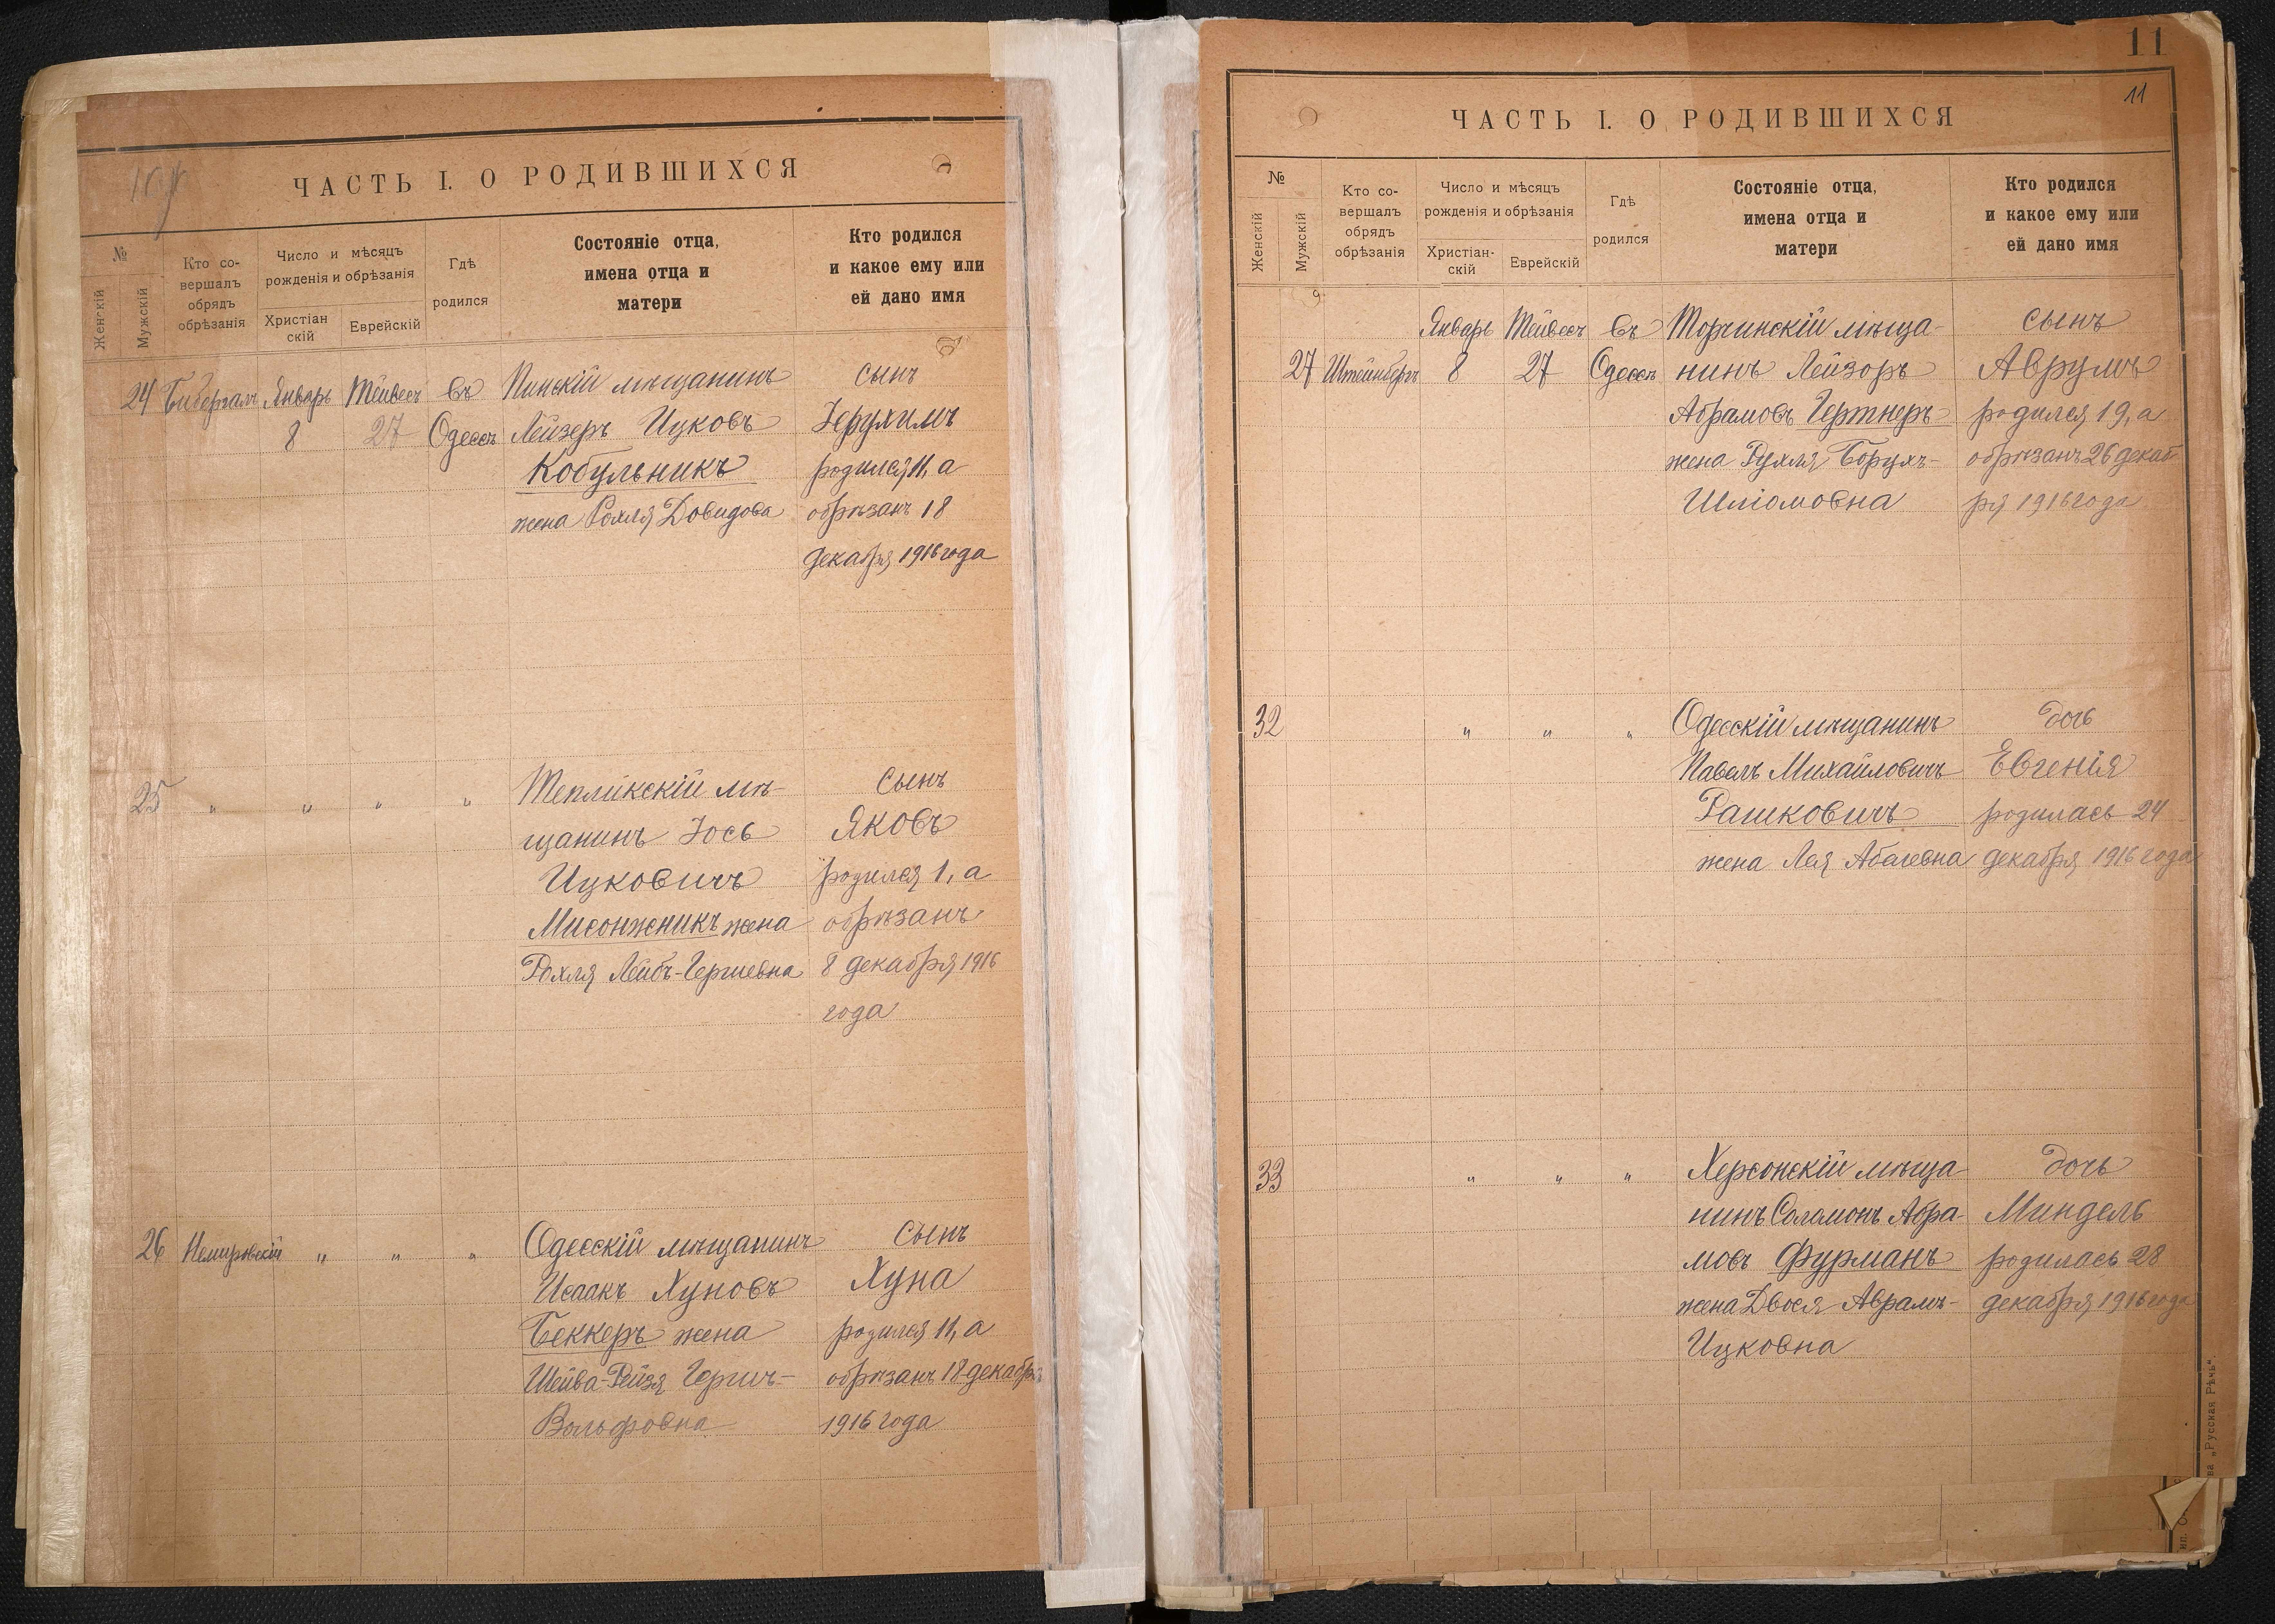 ЧАСТЬ I. О РОДИВШИХСЯ
№
Женскій
Мужскій
Кто со-
вершалъ
обрядъ
обрѣзанія
Число и мѣсяцъ
рожденія и обрѣзанія
Христіан
скій
Еврейскій
Гдѣ
родился
Состояніе отца,
имена отца и
матери
Кто родился
и какое ему или
ей дано имя
24 Бибергалъ Январь Тейвесъ въ Пинскій мѣщанинъ сынъ
8 27 Одессѣ Лейзеръ Ицковъ Іерухимъ
Кобульникъ родился 11, а
жена Рохля Довидова обрѣзанъ 18
декабря 1916 года
25 " " " " Тепликскій мѣ- сынъ
щанинъ Іось Яковъ
Ицковичъ родился 1, а
Мисонжникъ жена обрѣзанъ
Рохля Лейбъ-Гершевна 8 декабря 1916
года
26 Немировскій " " " Одесскій мѣщанинъ сынъ
Исаакъ Хуновъ Хуна
Беккеръ жена родился 11, а
Шейва-Рейзя Гершъ- обрѣзанъ 18 декабря
Вольфовна 1916 года
11
11
ЧАСТЬ I. О РОДИВШИХСЯ
№
Женскій
Мужскій
Кто со-
вершалъ
обрядъ
обрѣзанія
Число и мѣсяцъ
рожденія и обрѣзанія
Христіан-
скій
Еврейскій
Гдѣ
родился
Состояніе отца,
имена отца и
матери
Кто родился
и какое ему или
ей дано имя
Январь Тейвесъ въ Торчинскій мѣща- сынъ
27 Штейнбергъ 8 27 Одессѣ нинъ Лейзоръ Аврумъ
Абрамовъ Гертнеръ родился 19, а
жена Рухля Борухъ- обрѣзанъ 26 декаб
Шліомовна ря 1916 года
32 " " " Одесскій мѣщанинъ дочь
Павелъ Михайловичъ Евгенія
Рашковичъ родилась 24
жена Лея Абелевна декабря 1916 года
33 " " " Херсонскій мѣща дочь
нинъ Соломонъ Абра- Миндель
мовъ Фурманъ родилась 28
жена Двося Аврамъ- декабря 1916 года
Ицковна
ва „Русская Рѣчь“